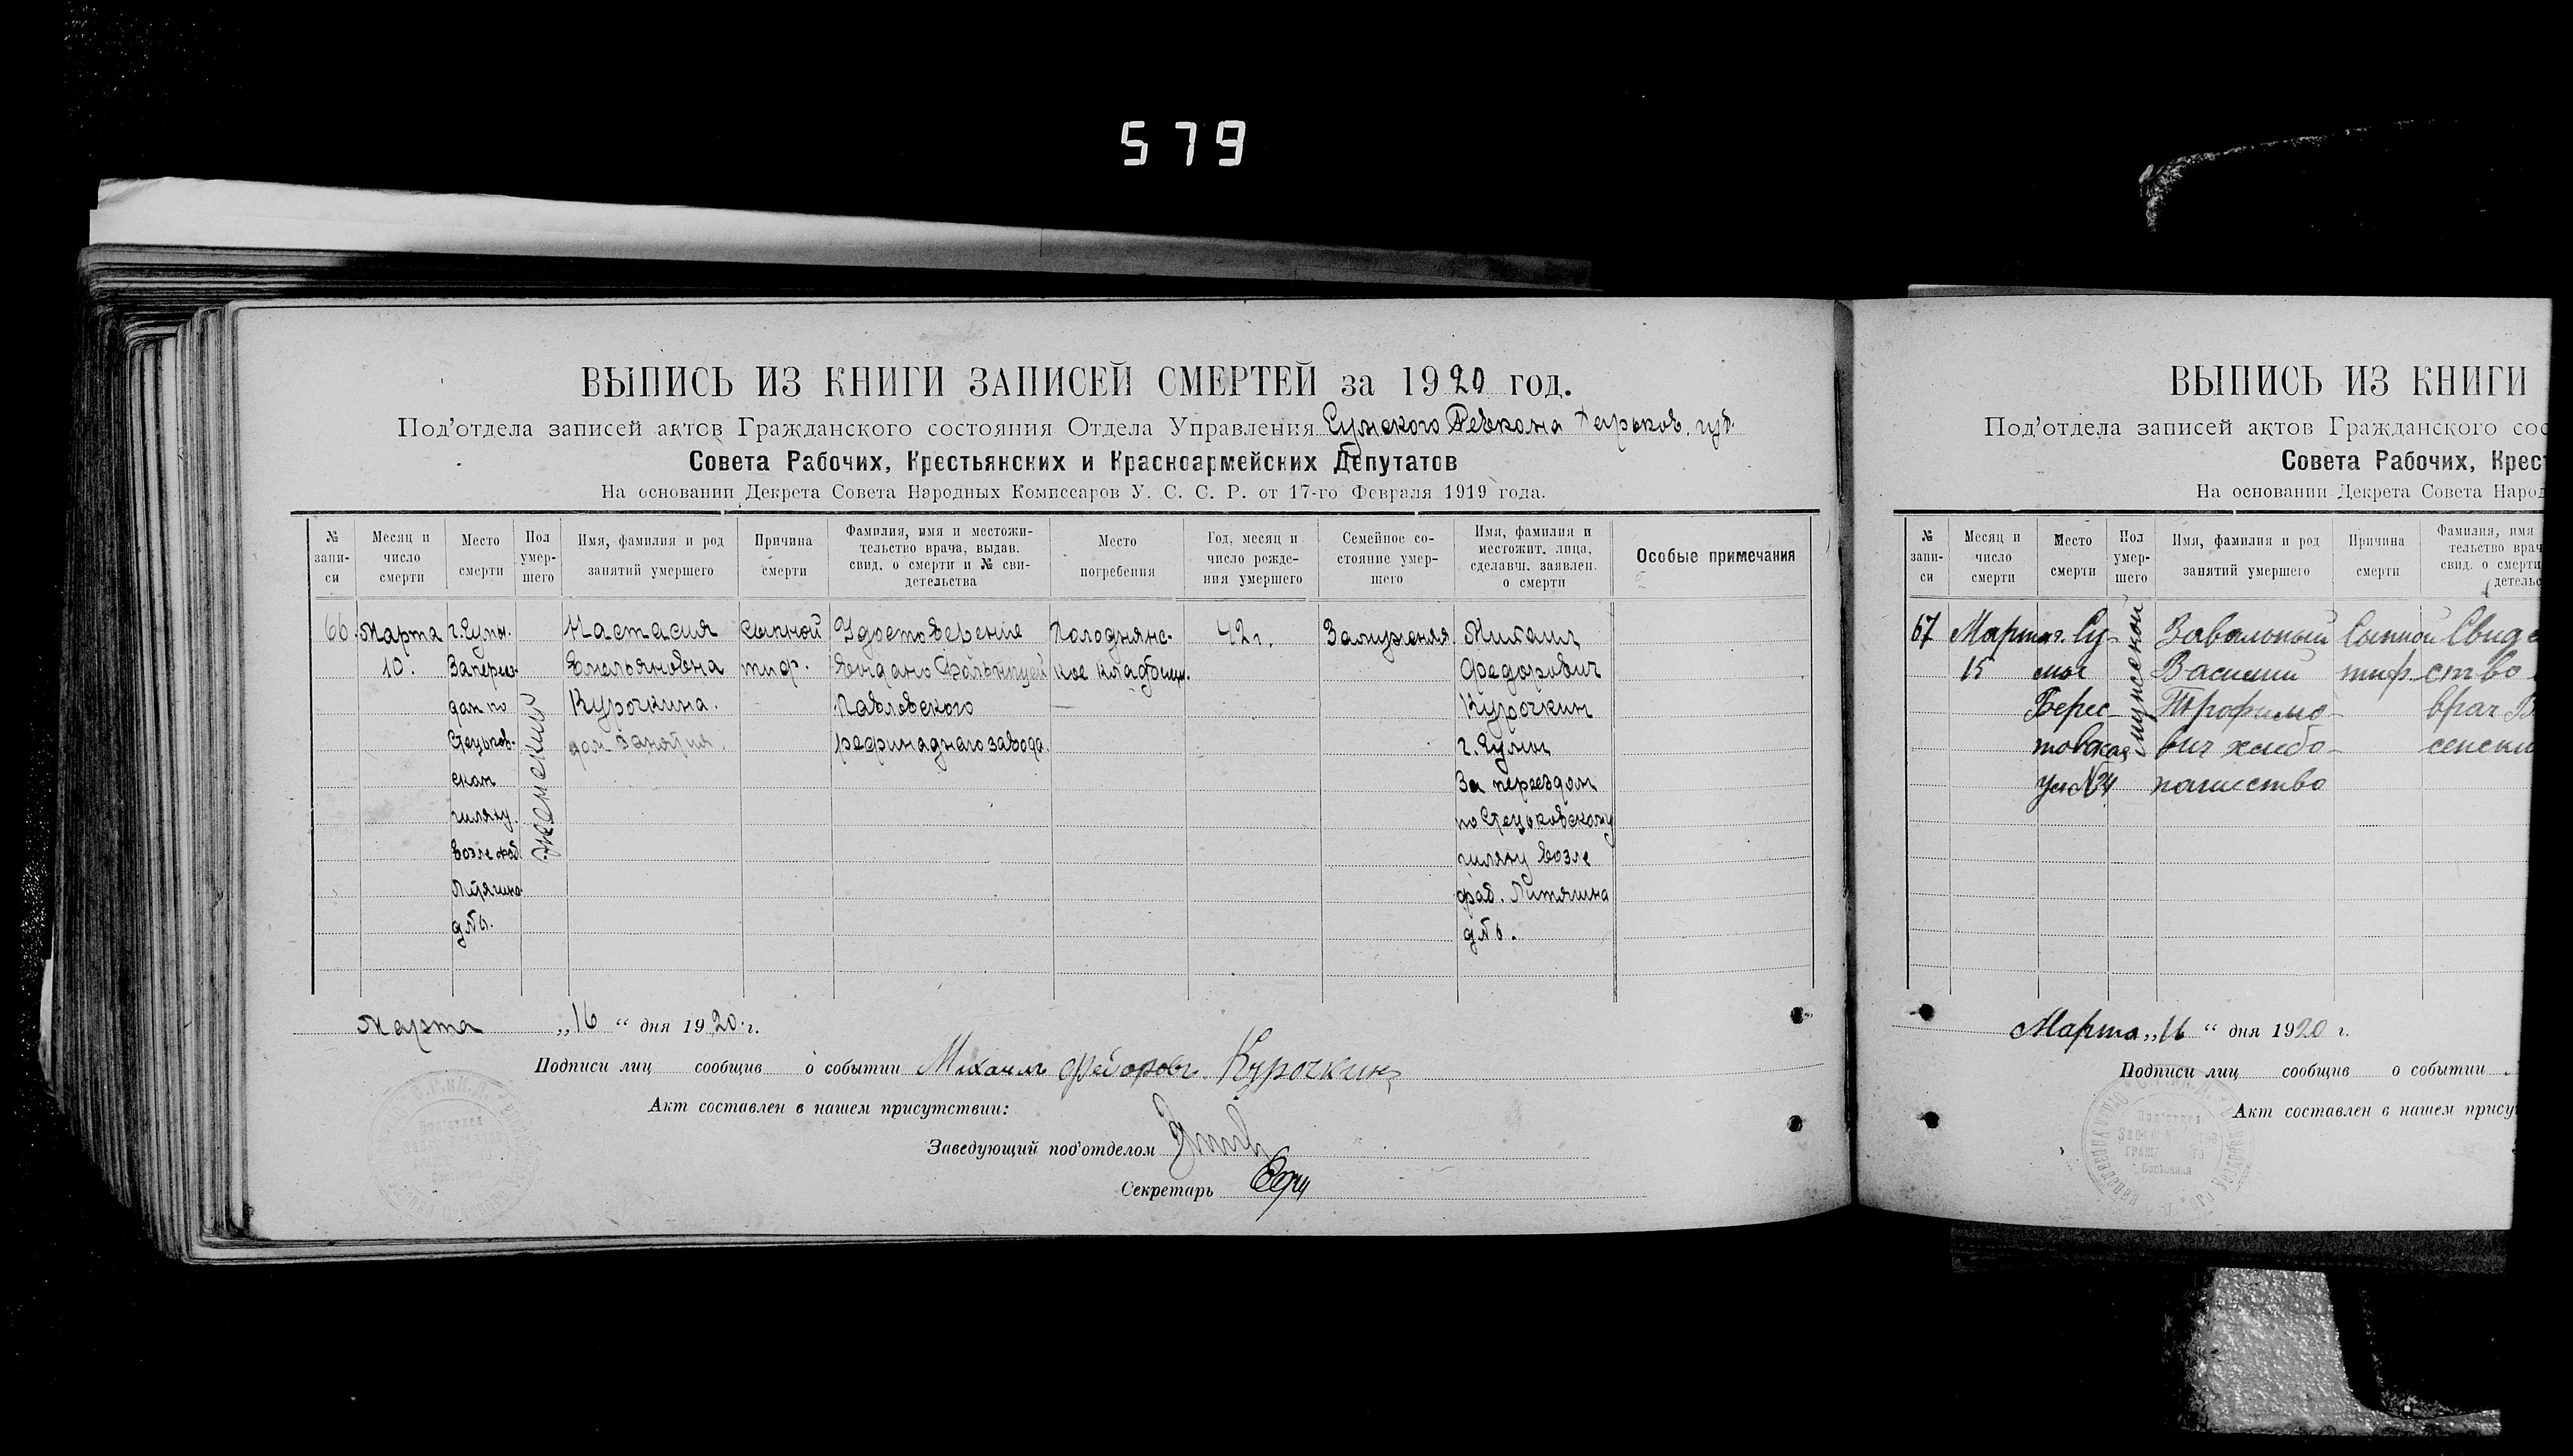 579
ВЫПИСЬ ИЗ КНИГИ ЗАПИСЕЙ СМЕРТЕЙ за 1920 год.
Под'отдела записей актов Гражданского состояния Отдела Управления Сумского Ревкома Харьков. губ.
Совета Рабочих, Крестьянских и Красноармейских Депутатов
На основании Декрета Совета Народных Комиссаров У. С. С. Р. от 17-го Февраля 1919 года.
№ запи-
си
Месяц и
число
смерти
Место
смерти
Пол
умер-
шего
Имя, фамилия и род
занятий умершего
Причина
смерти
Фамилия, имя и местожи-
тельство врача, выдав.
свид. о смерти и № сви-
детельства
Место
погребения
Год, месяц и
число рожде-
ния умершего
Семейное со-
стояние умер-
шего
Имя, фамилия и
местожит. лица,
сделавш. заявлен.
о смерти
Особые примечания
66.
Марта
10.
г. Сумы.
За переез-
дам по
Стецьков-
скам
шляху.
возле фаб.
Литягина
д№6.
женский
Настасия
Емельяновна
Курочкина.
дом. занятия.
сыпной
тиф.
Удостоверение
выдано больницей
Павловского
рафинаднаго завода.
Холоднянс-
кое кладбище.
42 г.
Замужняя
Михаил
Федорович
Курочкин
г. Сумы
За переездом
по Стецьковскому
шляху возле
фаб. Литягина
д№6.
Марта „16“ дня 1920 г.
Подписи лиц сообщив о событии Михаилъ Федоровъ Курочкинъ
Акт составлен в нашем присутствии:
Заведующий под'отделом
Секретарь
ВЫПИСЬ ИЗ КНИГИ
Под'отдела записей актов Гражданского сос
Совета Рабочих, Крест
На основании Декрета Совета Народ
№ запи-
си
Месяц и
число
смерти
Место
смерти
Пол
умер-
шего
Имя, фамилия и род
занятий умершего
Причина
смерти
Фамилия, имя
тельство врач
свид. о смерти
детельс
67
Марта
15
г. Су-
мы
Берес-
товская
ул №24
мужской
Завалопый
Василий
Трофимо-
вич хлебо-
пашество
Сыпной
тиф
Свиде
ство
врач В
сенски
Марта „16“ дня 1920 г.
Подписи лиц сообщив о событии
Акт составлен в нашем прису